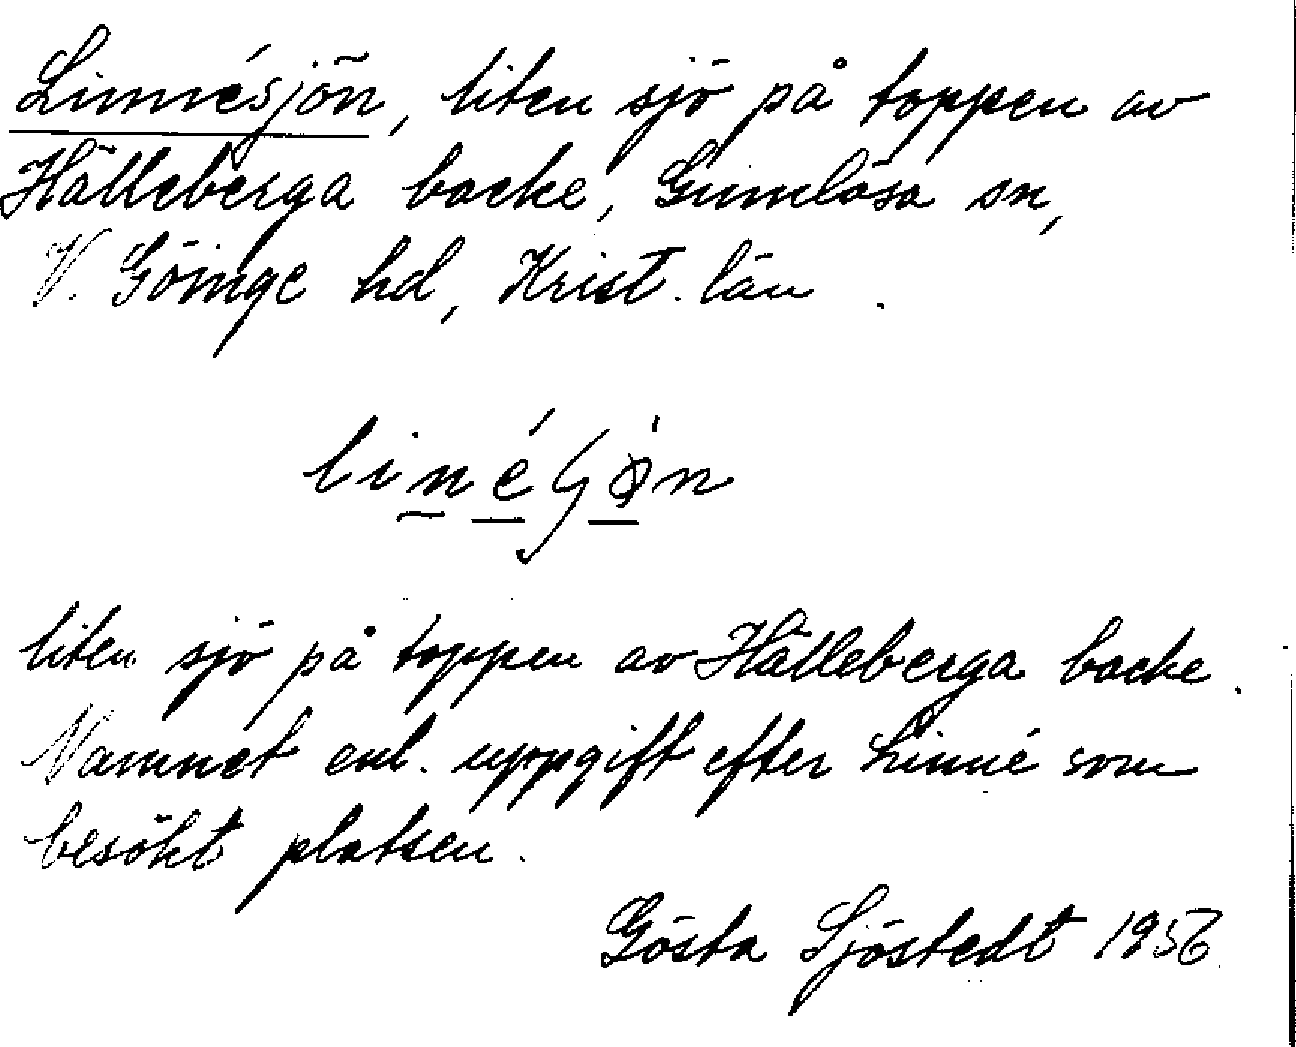 Linnésjön, liten sjö på toppen av
Hälleberga backe, Gumlösa sn,
V. Göinge hd, Krist. län.
linéʃøn
liten sjö på toppen av Hälleberga backe.
Namnet enl. uppgift efter Linné som
besökt platsen.
Gösta Sjöstedt 1956